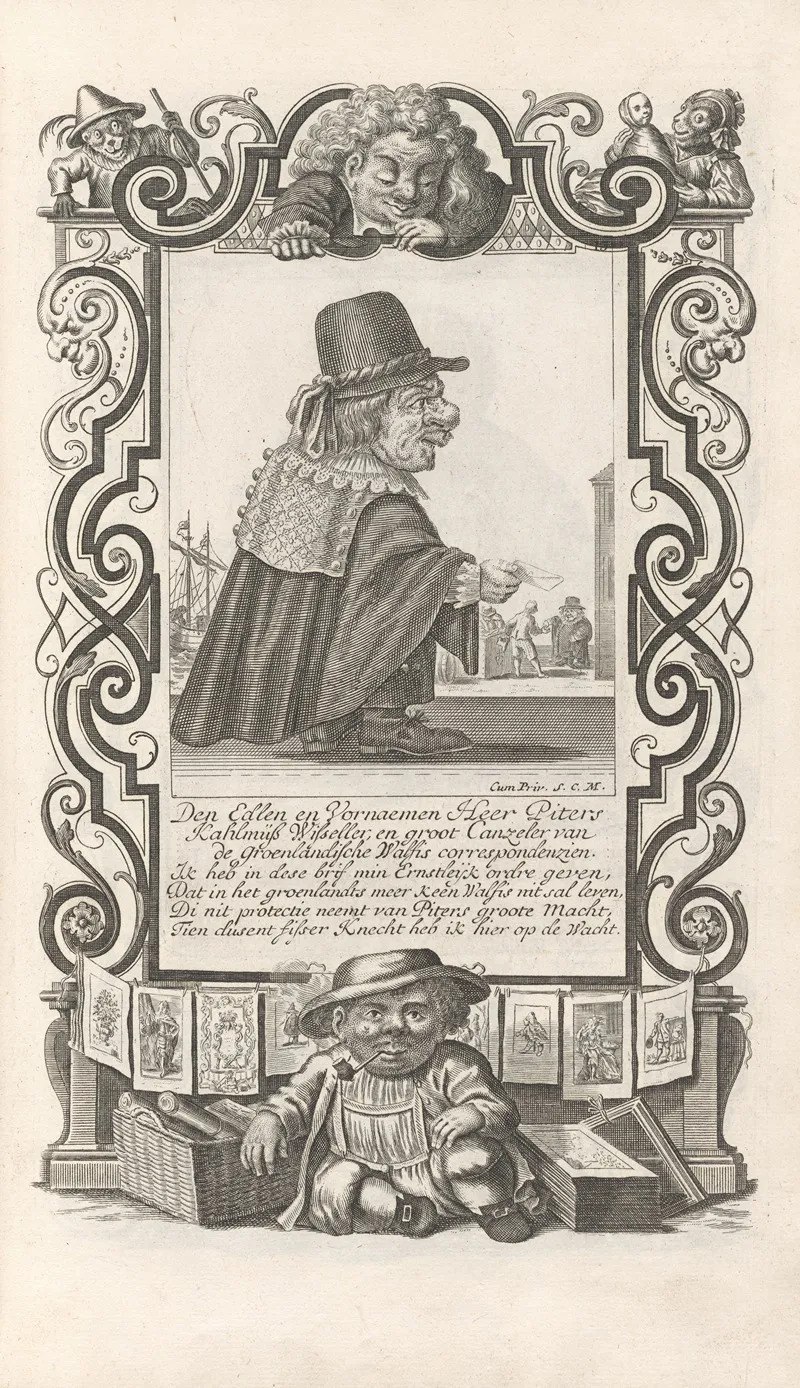 Cum Priv. S. C. M.
Den Edlen en Vornaemen Heer Piters
Kahlmüß Wißeller, en groot Canzeler van
de Groenländische Walfis correspondenzien.
Ik heb in dese brif min Ernstleijk ordre geven,
Dat in het groenlandts meer keen Walfis nit sal leven,
Di nit protectie neemt van Piters groote Macht,
Tien dusent fisser Knecht heb ik hier op de Wacht.